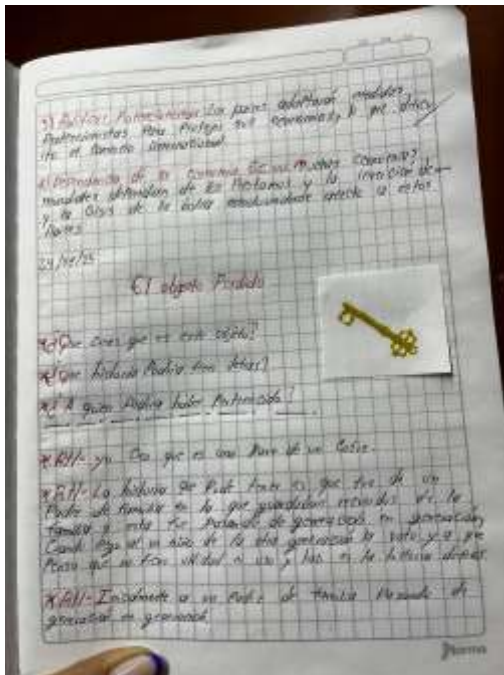 3) Políticas Proteccionistas: Los países adoptaron medidas
Proteccionistas Para Proteger sus economías, lo que
el comercio internacional.
4) Dependencia de la Economía EE.UU: Muchas
mundiales dependían de los Prestamos y la inversión
y la Crisis de la bolsa estadounidense afecto a estos
Países.
El objeto Perdido
*¿Que crees que es este objeto?
*¿Que historia Podria tener detras?
*¿A quien Podria haber Pertenecido?
*R//- yo Creo que es una llave de un Cofre.
*R//- La historia que Pudo tener es que fue de un
Padre de familia en la que guardaban recuerdos de la
familia y esta fue Pasando de generacion en generación,
Cuando llego a un niño de la otra generacion la y a que
Penso que no tenia utilidad ni uso y
*R//- Inicialmente a un Padre de familia Pasando de
generacion en generacion.